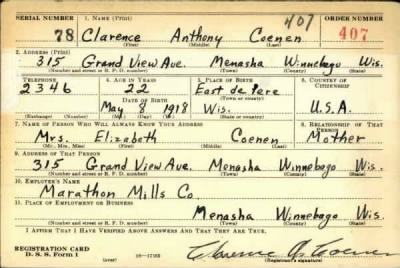 SERIAL NUMBER 1. NAME (Print) 407 ORDER NUMBER
78 Clarence Anthony Coenen 407
(First) (Middle) (Last)
2. ADDRESS (Print)
315 Grand View Ave. Menasha Winnebago Wis.
(Number and street or R. F. D. number) (Town) (County) (State)
3. TELEPHONE 4. AGE IN YEARS 5. PLACE OF BIRTH 6. COUNTRY OF CITIZENSHIP
2346 22 East de Pere
DATE OF BIRTH (Town or county)
May 8 1918 Wis. U.S.A.
(Exchange) (Number) (Mo.) (Day) (Yr.) (State or country)
7. NAME OF PERSON WHO WILL ALWAYS KNOW YOUR ADDRESS 8. RELATIONSHIP OF THAT PERSON
Mrs. Elizabeth Coenen Mother
(Mr., Mrs., Miss) (First) (Middle) (Last)
9. ADDRESS OF THAT PERSON
315 Grand View Ave. Menasha Winnebago Wis.
(Number and street or R. F. D. number) (Town) (County) (State)
10. EMPLOYER'S NAME
Marathon Mills Co.
11. PLACE OF EMPLOYMENT OR BUSINESS
Menasha Winnebago Wis.
(Number and street or R. F. D. number) (Town) (County) (State)
I AFFIRM THAT I HAVE VERIFIED ABOVE ANSWERS AND THAT THEY ARE TRUE.
REGISTRATION CARD Clarence A. Coenen
D. S. S. Form 1 (over) (Registrant's signature)